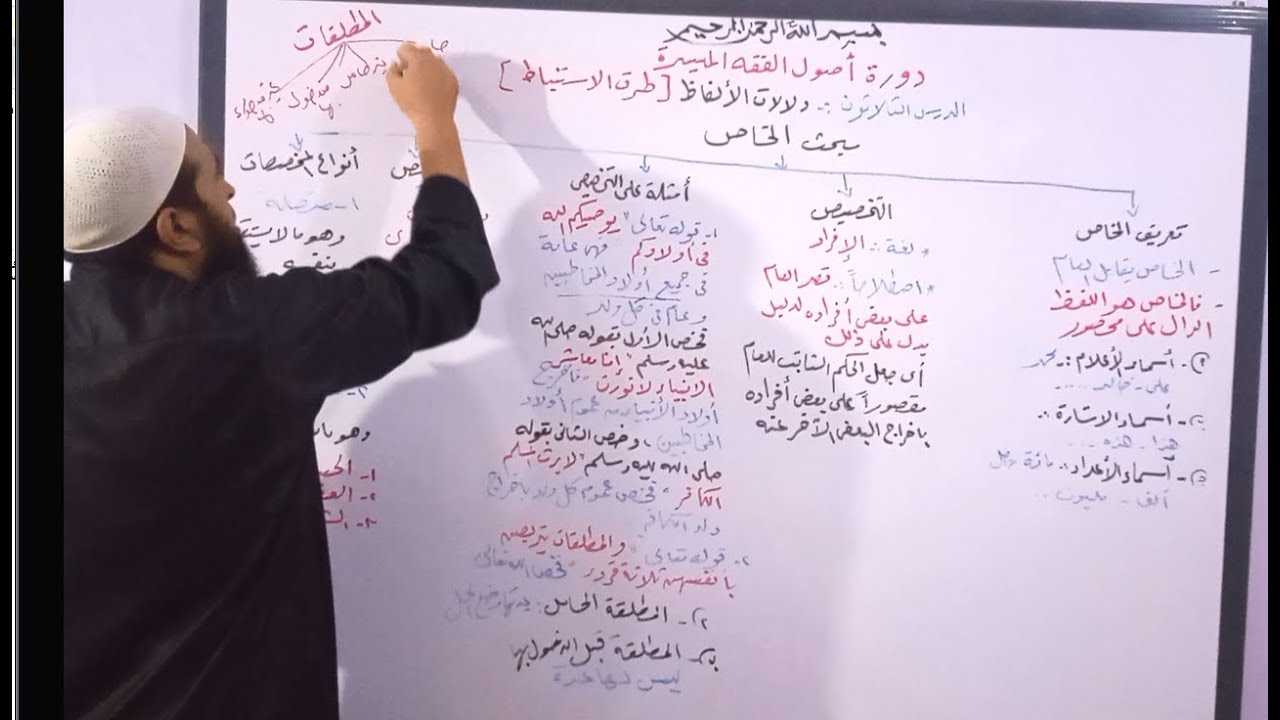 بسم الله الرحمن الرحيم
دورة أصول الفقه الميسرة
الدرس الثلاثون :. دلالات الألفاظ [طرق الاستنباط]
مبحث الخاص
تعريف الخاص
- الخاص يقابل العام
- فالخاص هو اللفظ
الدال على محصور
١- أسماء الأعلام :. محمد
على - خالد .....
٢- أسماء الاشارة :.
هذا - هذه ....
٣- أسماء الأعداد :. مائة
ألف - مليون ..
التخصيص
* لغة :. الإفراد
* اصطلاحاً :. قصر العام
على بعض أفراده لدليل
يدل على ذلك
أى جعل الحكم الثابت للعام
مقصوراً على بعض أفراده
باخراج البعض الآخر عنه
أمثلة على التخصيص
١- قوله تعالى "يوصيكم الله
فى أولادكم" فهى عامة
فى جميع أولاد المخاطبين
وعام فى كل ولد
فخص الأول بقوله صلى الله
عليه وسلم "إنا معاشر
الأنبياء لا نورث" فأخرج
أولاد الأنبياء من عموم أولاد
المخاطبين، وخص الثانى بقوله
صلى الله عليه وسلم "لا يرث المسلم
الكافر" فخص عموم كل ولد باخراج
ولد الكافر
٢- قوله تعالى "والمطلقات يتربصن
بأنفسهن ثلاثة قروء" فخص الله تعالى
١- المطلقة الحامل :
٢- المطلقة قبل الدخول بها
ليس لها عدة
أنواع المخصصات
١- متصلة
وهو مالا
بنفسه
المطلقات
حا